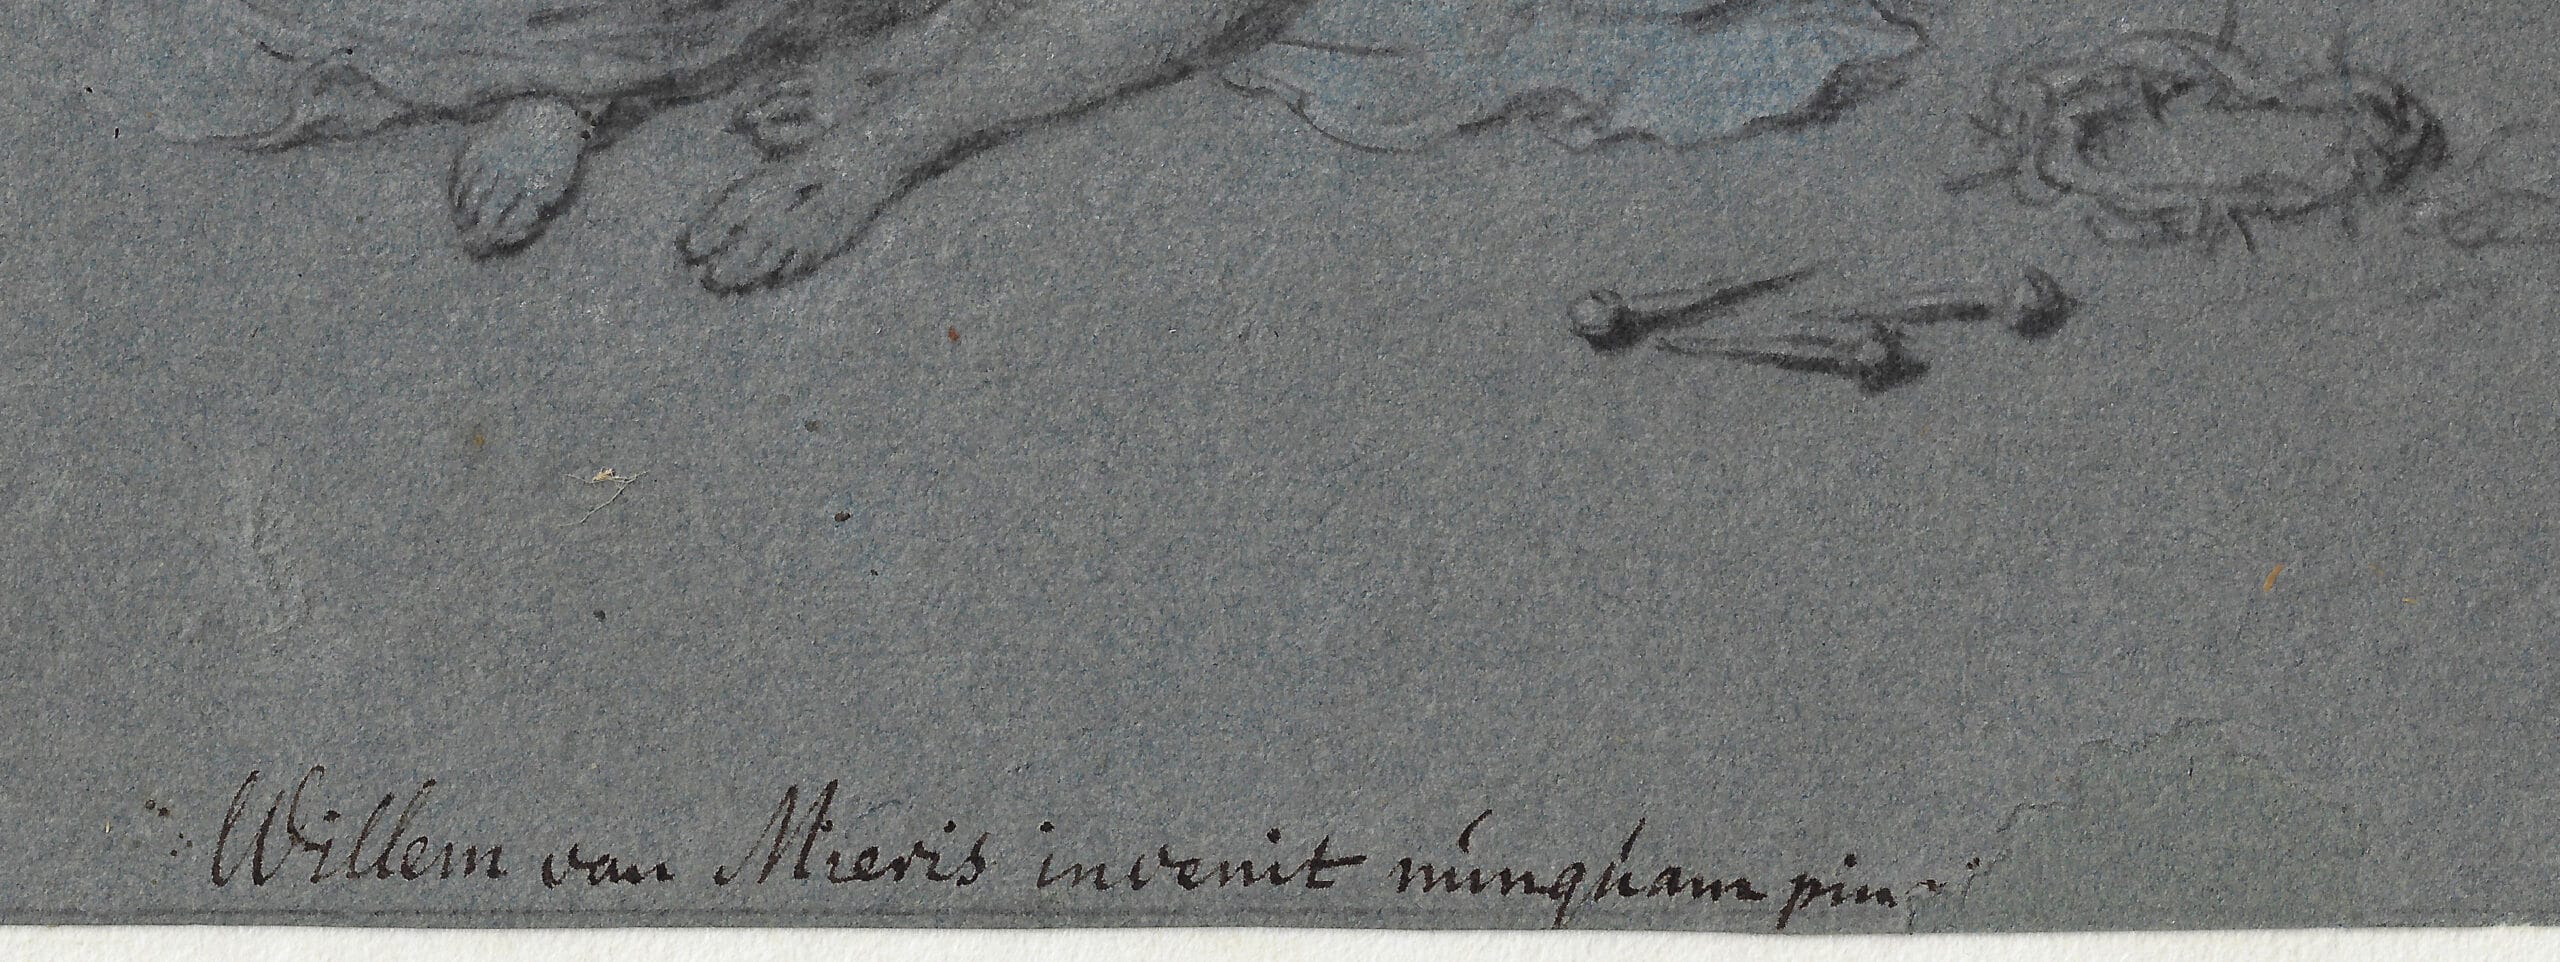 Willem van Mieris invenit núnqúam pin